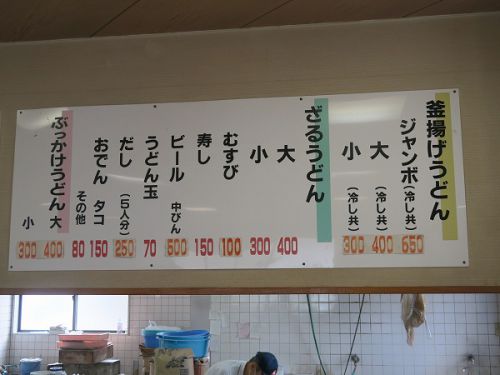 釜揚げうどん
ジャンボ(冷し共) 650
大(冷し共) 400
小(冷し共) 300
ざるうどん
大 400
小 300
むすび 100
寿し 150
ビール 中びん 500
うどん玉 70
だし(5人分) 250
おでん タコ 150
その他 80
ぶっかけうどん 大 400
小 300